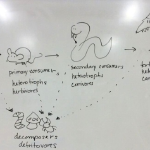 primary consumers
heterotrophs
herbivores
secondary consumers
heterotrophs
carnivores
decomposers
detritivores